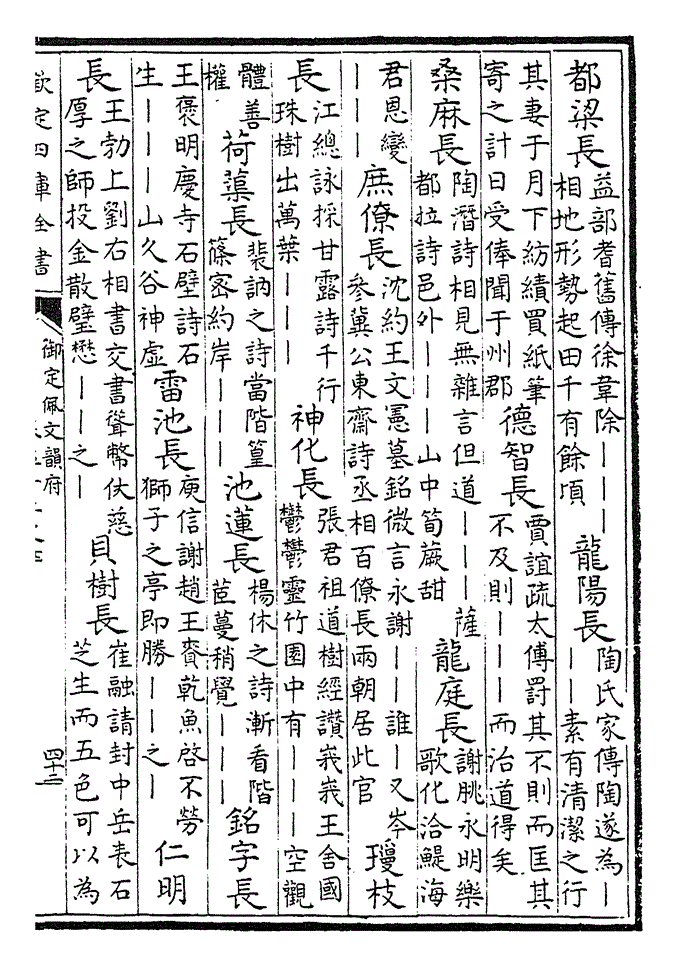 都梁長
益部耆舊傳徐韋除｜｜｜
相地形勢起田千有餘頃
龍陽長
陶氏家傳陶遂為｜
｜｜素有清潔之行
其妻于月下紡績買紙筆
寄之計日受俸聞于州郡
德智長
賈誼疏太傅罰其不則而匡其
不及則｜｜｜而治道得矣
桑麻長
陶潛詩相見無雜言但道｜｜｜薩
都拉詩邑外｜｜｜山中筍蕨甜
龍庭長
謝朓永明樂
歌化洽鯷海
君恩變
｜｜｜
庶僚長
沈約王文憲墓銘微言永謝｜｜誰｜又岑
參冀公東齋詩丞相百僚長兩朝居此官
瓊枝
長
江總詠採甘露詩千行
珠樹出萬葉｜｜｜
神化長
張君祖道樹經讚峩峩王舍國
鬱鬱靈竹園中有｜｜｜空觀
體善
權
荷蕖長
裴訥之詩當階篁
篠密約岸｜｜｜
池蓮長
楊休之詩漸看階
苖蔓稍覺｜｜｜
銘字長
王褒明慶寺石壁詩石
生｜｜｜山久谷神虛
雷池長
庾信謝趙王賚乾魚啓不勞
獅子之亭即勝｜｜之｜
仁明
長
王勃上劉右相書交書聳幣伏慈
厚之師投金散璧懋｜｜之｜
貝樹長
崔融請封中岳表石
芝生而五色可以為
欽定四庫全書
御定佩文韻府
四十三